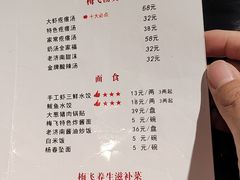 58元
大虾疙瘩汤 十大必点 32元
特色疙瘩汤 38元
家常疙瘩汤 58元
奶汤全家福 32元
老济南甜沫 32元
金牌酸辣汤
面食
手工虾三鲜水饺 13元/两 3两起
鲅鱼水饺 18元/两 3两起
大葱猪肉锅贴 39元/盘
梅飞特色炸酱面 5元/碗
老济南酱油炒饭 36元/盘
白米饭 5元/碗
杨春坠面 5元/碗
梅飞养生滋补菜